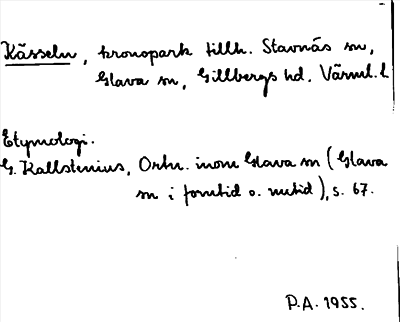 Kässeln, kronopark tillh. Stavnäs sn,
Glava sn, Gillbergs hd. Värml. l.
Etymologi.
G. Kallstenius, Ortn. inom Glava sn (Glava
sn i forntid o. nutid), s. 67.
P.A. 1955.